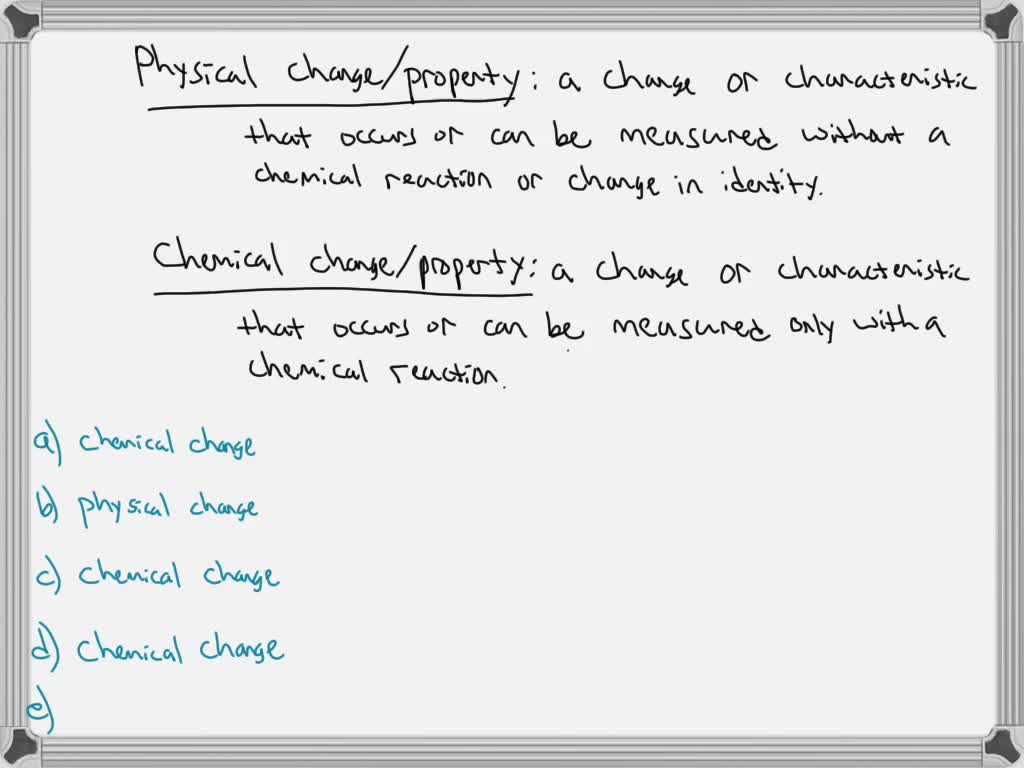 Physical change/property: a change or characteristic
that occurs or can be measured without a
chemical reaction or change in identity.
Chemical change/property: a change or characteristic
that occurs or can be measured only with a
chemical reaction.
a) chemical change
b) physical change
c) chemical change
d) chemical change
e)